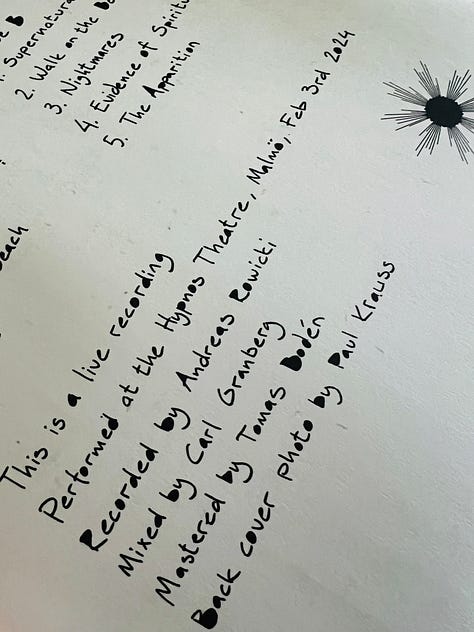 B
1. Supernatura
2. Walk on the B
3. Nightmares
4. Evidence of Spiritu
5. The Apparition
each
This is a live recording
Performed at the Hypnos Theatre, Malmö, Feb 3rd 2024
Recorded by Andreas Rowicki
Mixed by Carl Granberg
Mastered by Tomas Bodén
Back cover photo by Paul Krauss